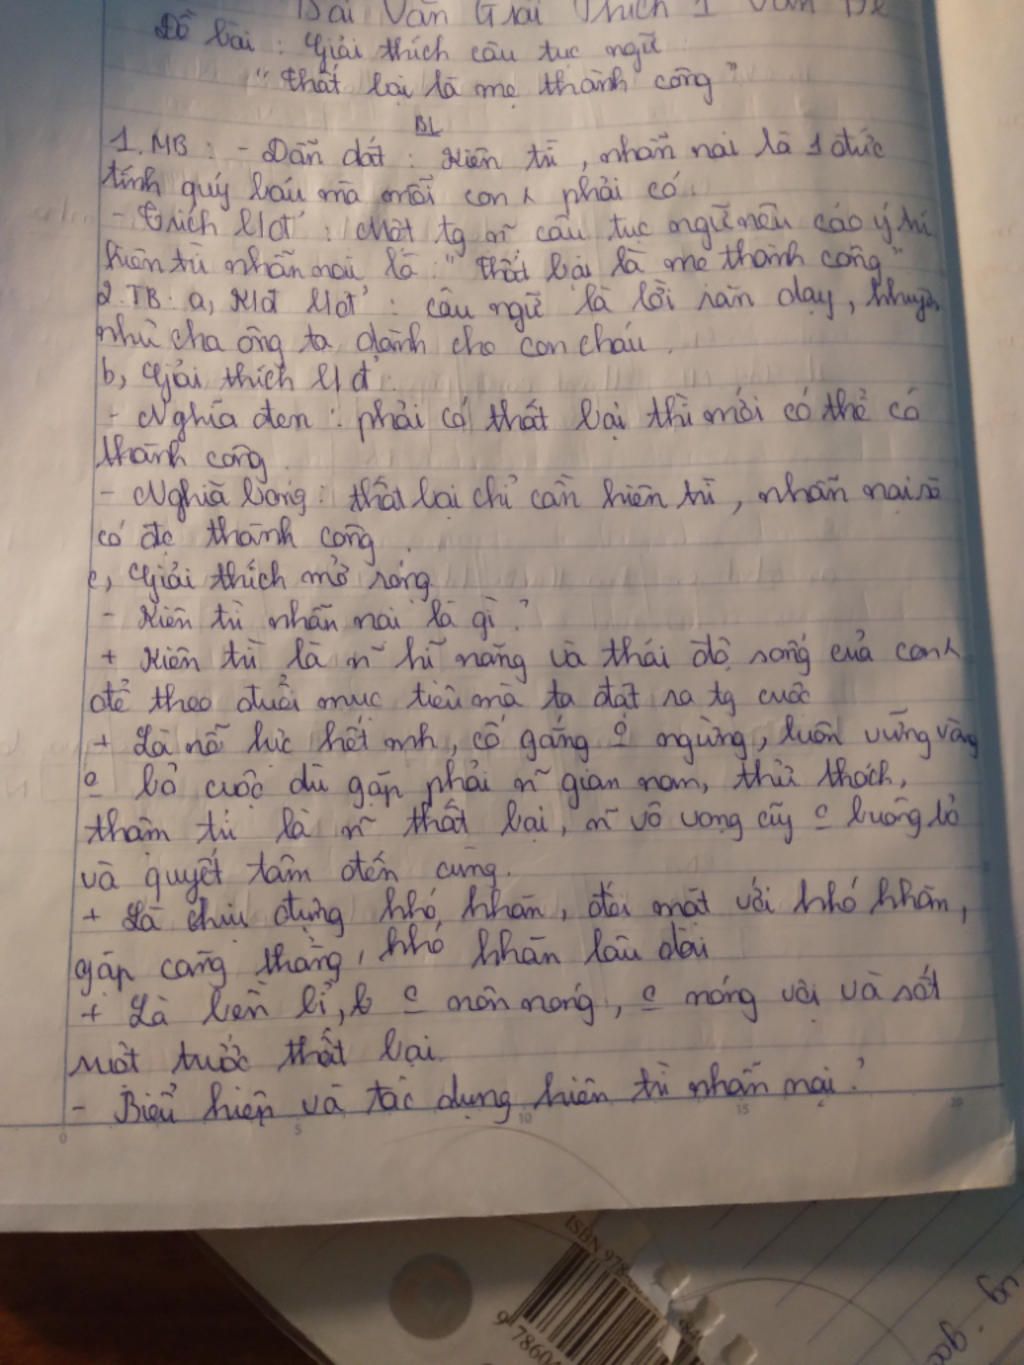 Bài Văn Giải Thích 1 Vấn Đề
Đề bài : Giải thích câu tục ngữ
"Thất bại là mẹ thành công"
BL
1. MB : - Dẫn dắt : Kiên trì, nhẫn nại là 1 đức
tính quý báu mà mỗi con phải có.
- Trích : Một tg n~ câu tục ngữ nêu cáo ý trí
kiên trì nhẫn nại là : " Thất bại là mẹ thành công"
2. TB : a, : câu ngữ là lời răn dạy, khuyên
nhủ cha ông ta dành cho con cháu.
b, Giải thích
- Nghĩa đen : phải có thất bại thì mới có thể có
thành công.
- Nghĩa bóng : thất bại chỉ cần kiên trì, nhẫn nại sẽ
có đc thành công.
c, Giải thích mở rộng
- Kiên trì nhẫn nại là gì ?
+ Kiên trì là n~ kĩ năng và thái độ sống của con
để theo đuổi mục tiêu mà ta đặt ra tg cuộc
+ Là nỗ lực hết mh, cố gắng ngừng, luôn vững vàng
bỏ cuộc dù gặp phải n~ gian nan, thử thách,
thậm trí là n~ thất bại, n~ vô vọng cũg buông bỏ
và quyết tâm đến cùng.
+ Là chịu đựng khó khăn, đối mặt với khó khăn,
gặp căng thẳng, khó khăn lâu dài
+ Là bền bỉ, nôn nóng, nóng vội và sốt
ruột trước thất bại.
- Biểu hiện và tác dụng kiên trì nhẫn nại ?
0 5 10 15 20
ISBN 978
9 7860